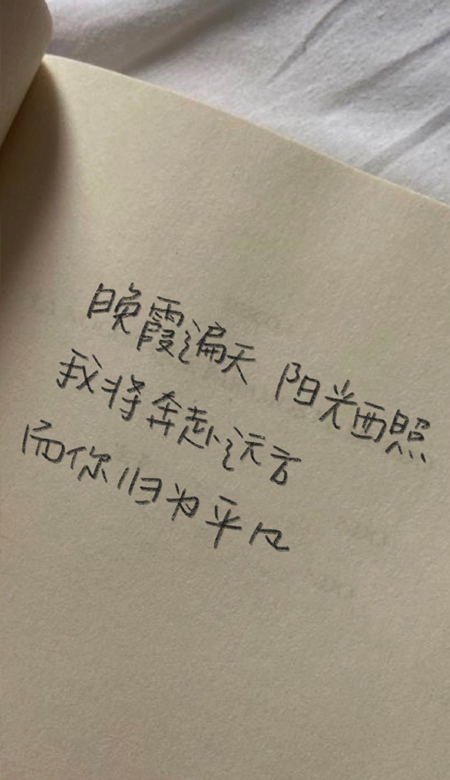 晚霞遍天 阳光西照
我将奔赴远方
而你归为平凡